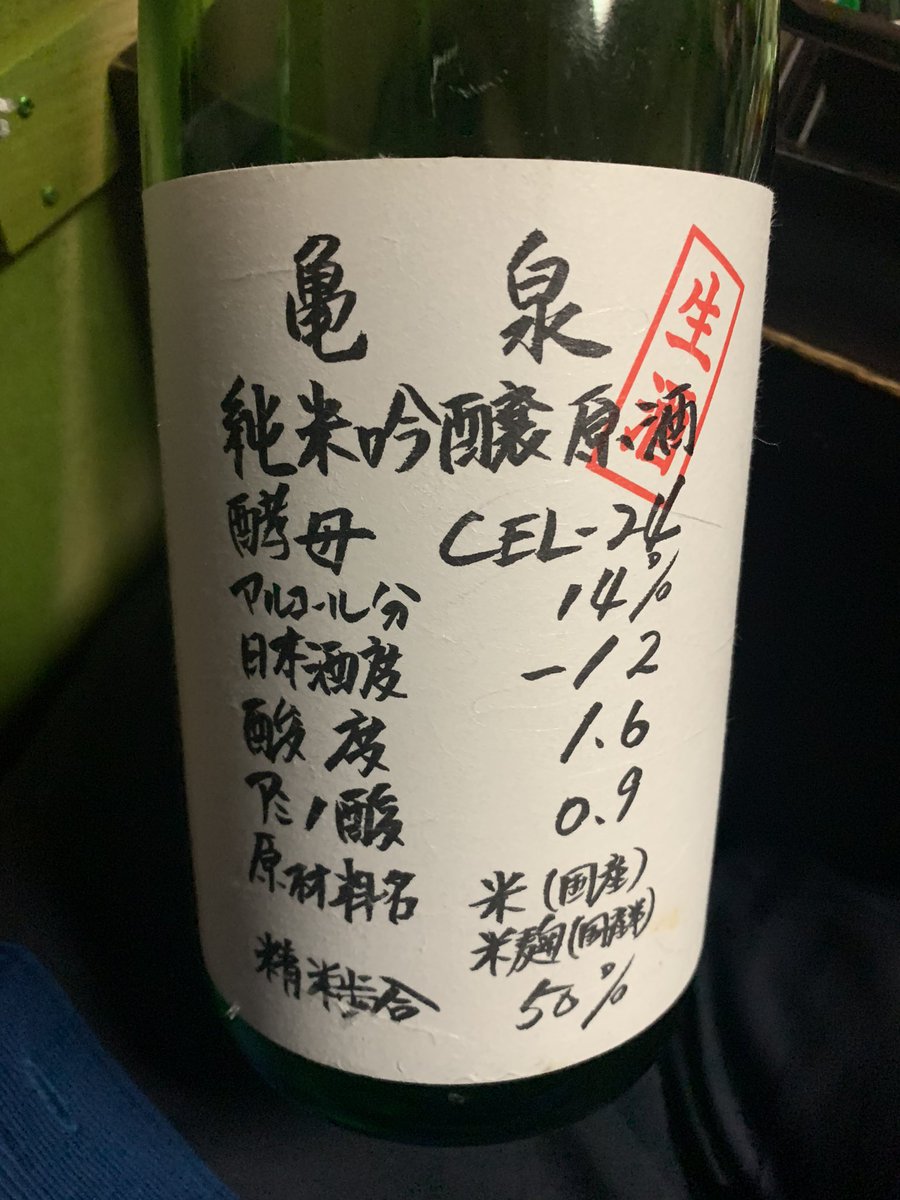 亀泉
生酒
純米吟醸原酒
酵母 CEL-24
アルコール分 14%
日本酒度 -12
酸度 1.6
アミノ酸 0.9
原材料名 米(国産)
米麹(国産)
精米歩合 50%